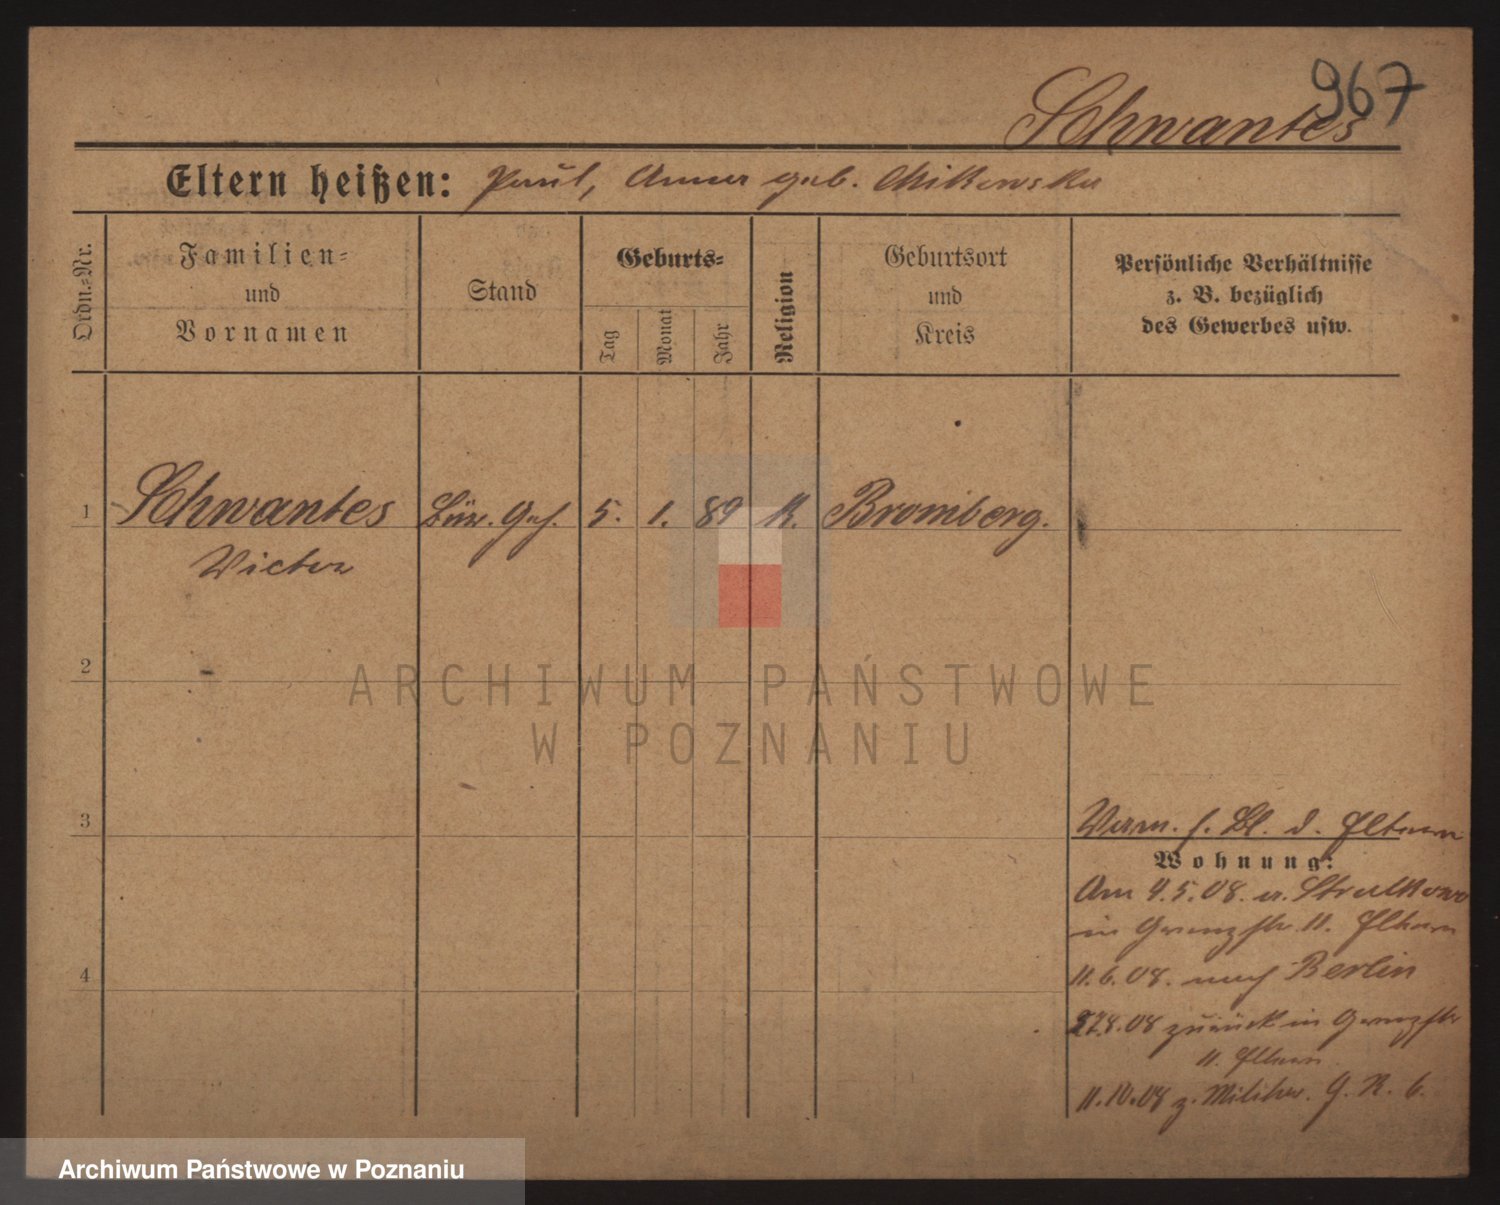 967
Schwantes
Eltern heißen: Paul, Anna geb. Mikowska
Ordn.-Nr.
Familien- und Vornamen
Stand
Geburts-
Tag
Monat
Jahr
Religion
Geburtsort und Kreis
Persönliche Verhältnisse z. B. bezüglich des Gewerbes usw.
1 Schwantes Bür. Geh. 5. 1. 89 K. Bromberg.
Victor
2
ARCHIWUM PAŃSTWOWE
W POZNANIU
3
Verm. s. Bl. d. Eltern
Wohnung:
Am 4.5.08. a. Stralkowo
in Grenzstr. 11. Eltern
4
11.6.08. nach Berlin
27.8.08 zurück in Grenzstr
11. Eltern
11.10.08 z. Militär. G. R. 6.
Archiwum Państwowe w Poznaniu